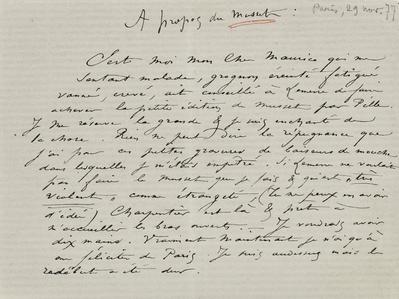 A propos du Musset :
Paris, 29 nov. 77
C'est moi mon cher Maurice qui me
sentant malade, grognon, éreinté fatigué
vanné, crevé, ait conseillé à Lemerre de faire
achever la petite édition de Musset par Pille.
Je me réserve la grande & je suis enchanté de
la chose. Rien ne peut dire la répugnance que
j'ai pour ces petites gravures de
dans lesquelles je m'étais empêtré. Si Lemerre ne voulait
pas faire le Musset que je fais & qui est très
violent, comme étrangeté (tu ne peux en avoir
d'idée) Charpentier est là & prêt à
m'accueillir les bras ouverts — Je voudrais avoir
dix mains. Vraiment maintenant je n'ai qu'à
me féliciter de Paris. Je suis audessus mais le
a été dur.